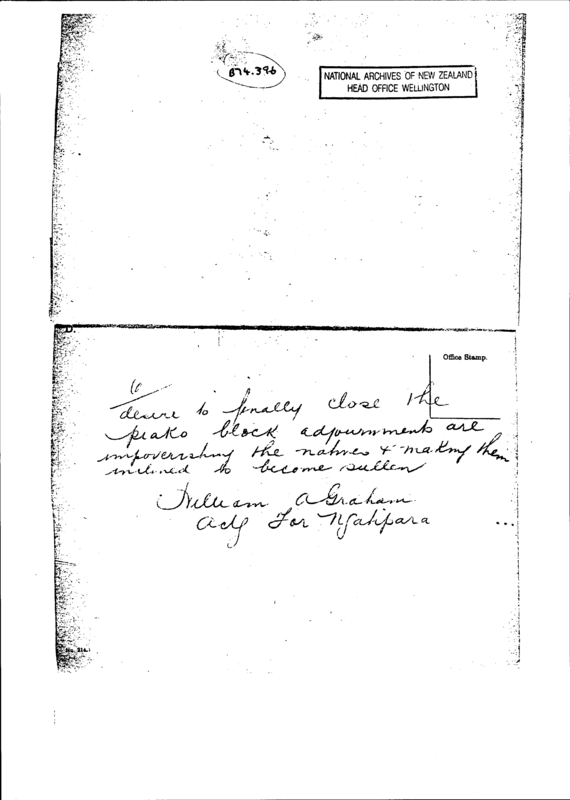 B74.396
NATIONAL ARCHIVES OF NEW ZEALAND
HEAD OFFICE WELLINGTON
D.
Office Stamp.
desire to finally close the
piako block adjournments are
impoverishing the natives & making them
inclined to become sullen
William A Graham
For Ngatipara